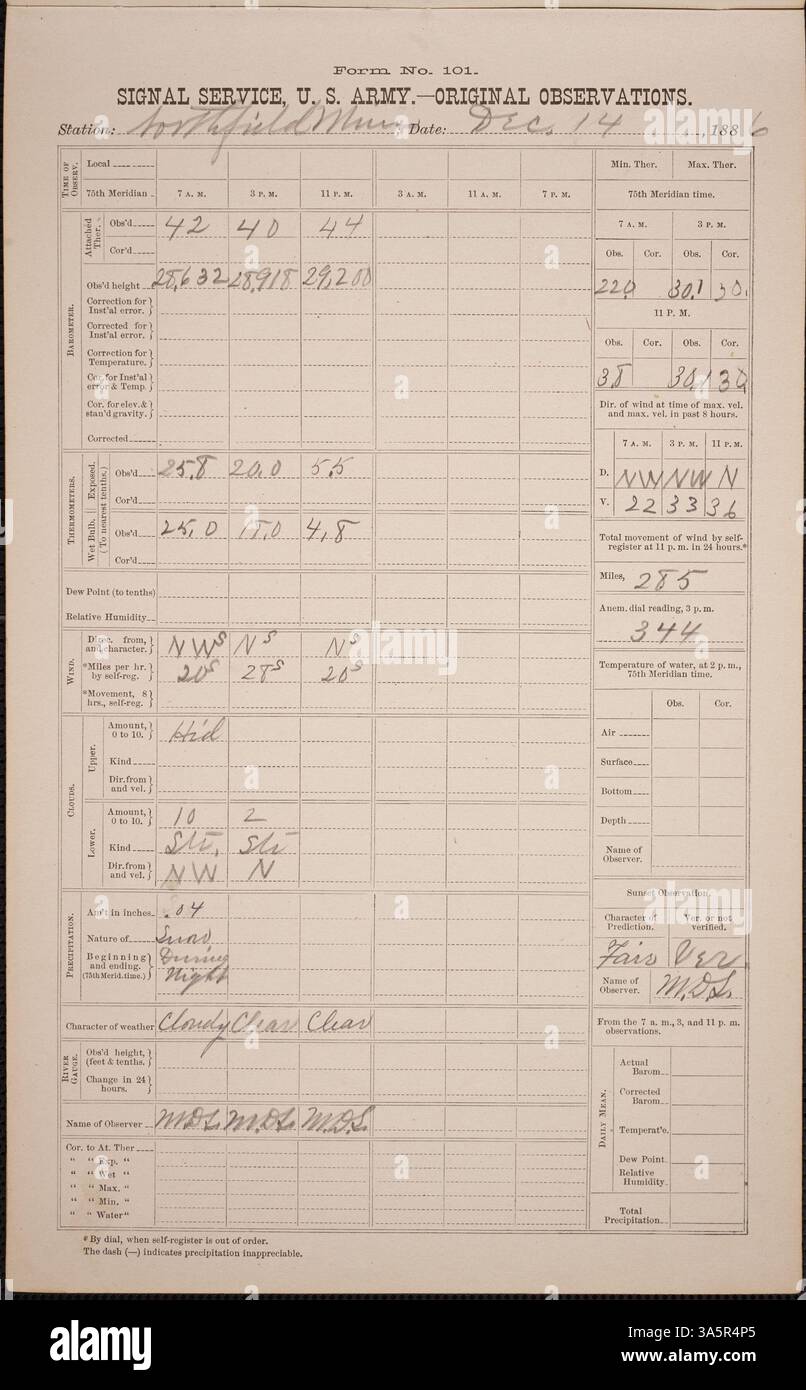 Form No. 101.
SIGNAL SERVICE, U. S. ARMY.—ORIGINAL OBSERVATIONS.
Station: Northfield Minn Date: Dec. 14, 1886
TIME OF OBSERV.
Local
75th Meridian 7 A. M. 3 P. M. 11 P. M. 3 A. M. 11 A. M. 7 P. M.
BAROMETER.
Attached Ther.
Obs'd 42 40 44
Cor'd
Obs'd height 28.632 28.918 29.200
Correction for Inst'al error.
Corrected for Inst'al error.
Correction for Temperature.
Cor. for Inst'al error & Temp.
Cor. for elev. & stan'd gravity.
Corrected
THERMOMETERS.
Wet Bulb. Exposed.
(To nearest tenths.)
Obs'd 25.8 20.0 5.5
Cor'd
Obs'd 25.0 18.0 4.8
Cor'd
Dew Point (to tenths)
Relative Humidity
WIND.
Direc. from, and character. NW S N S N S
*Miles per hr. by self-reg. 20 S 28 S 20 S
*Movement, 8 hrs., self-reg.
CLOUDS.
Upper.
Amount, 0 to 10. Hid
Kind
Dir. from and vel.
Lower.
Amount, 0 to 10. 10 2
Kind Str. Str
Dir. from and vel. NW N
PRECIPITATION.
Am't in inches .04
Nature of Snow
Beginning and ending. (75th Merid. time.) During Night
Character of weather Cloudy Clear Clear
RIVER GAUGE.
Obs'd height, (feet & tenths.
Change in 24 hours.
Name of Observer M.D.S. M.D.S. M.D.S.
Cor. to At. Ther
" " Exp. "
" " Wet "
" " Max. "
" " Min. "
" " Water "
*By dial, when self-register is out of order.
The dash (—) indicates precipitation inappreciable.
Min. Ther. Max. Ther.
75th Meridian time.
7 A. M. 3 P. M.
Obs. Cor. Obs. Cor.
22.0 30.1 30.
11 P. M.
Obs. Cor. Obs. Cor.
3.8 30.1
Dir. of wind at time of max. vel. and max. vel. in past 8 hours.
7 A. M. 3 P. M. 11 P. M.
D. NW NW N
V. 22 33 36
Total movement of wind by self-register at 11 p. m. in 24 hours.*
Miles, 285
Anem. dial reading, 3 p. m.
344
Temperature of water, at 2 p. m., 75th Meridian time.
Obs. Cor.
Air
Surface
Bottom
Depth
Name of Observer.
Sunset Observation.
Character of Prediction. Ver. or not verified.
Fair Ver.
Name of Observer. M.D.S.
From the 7 a. m., 3, and 11 p. m. observations.
DAILY MEAN.
Actual Barom.
Corrected Barom.
Temperat'e.
Dew Point.
Relative Humidity.
Total Precipitation.
alamy
Image ID: 3A5R4P5
www.alamy.com